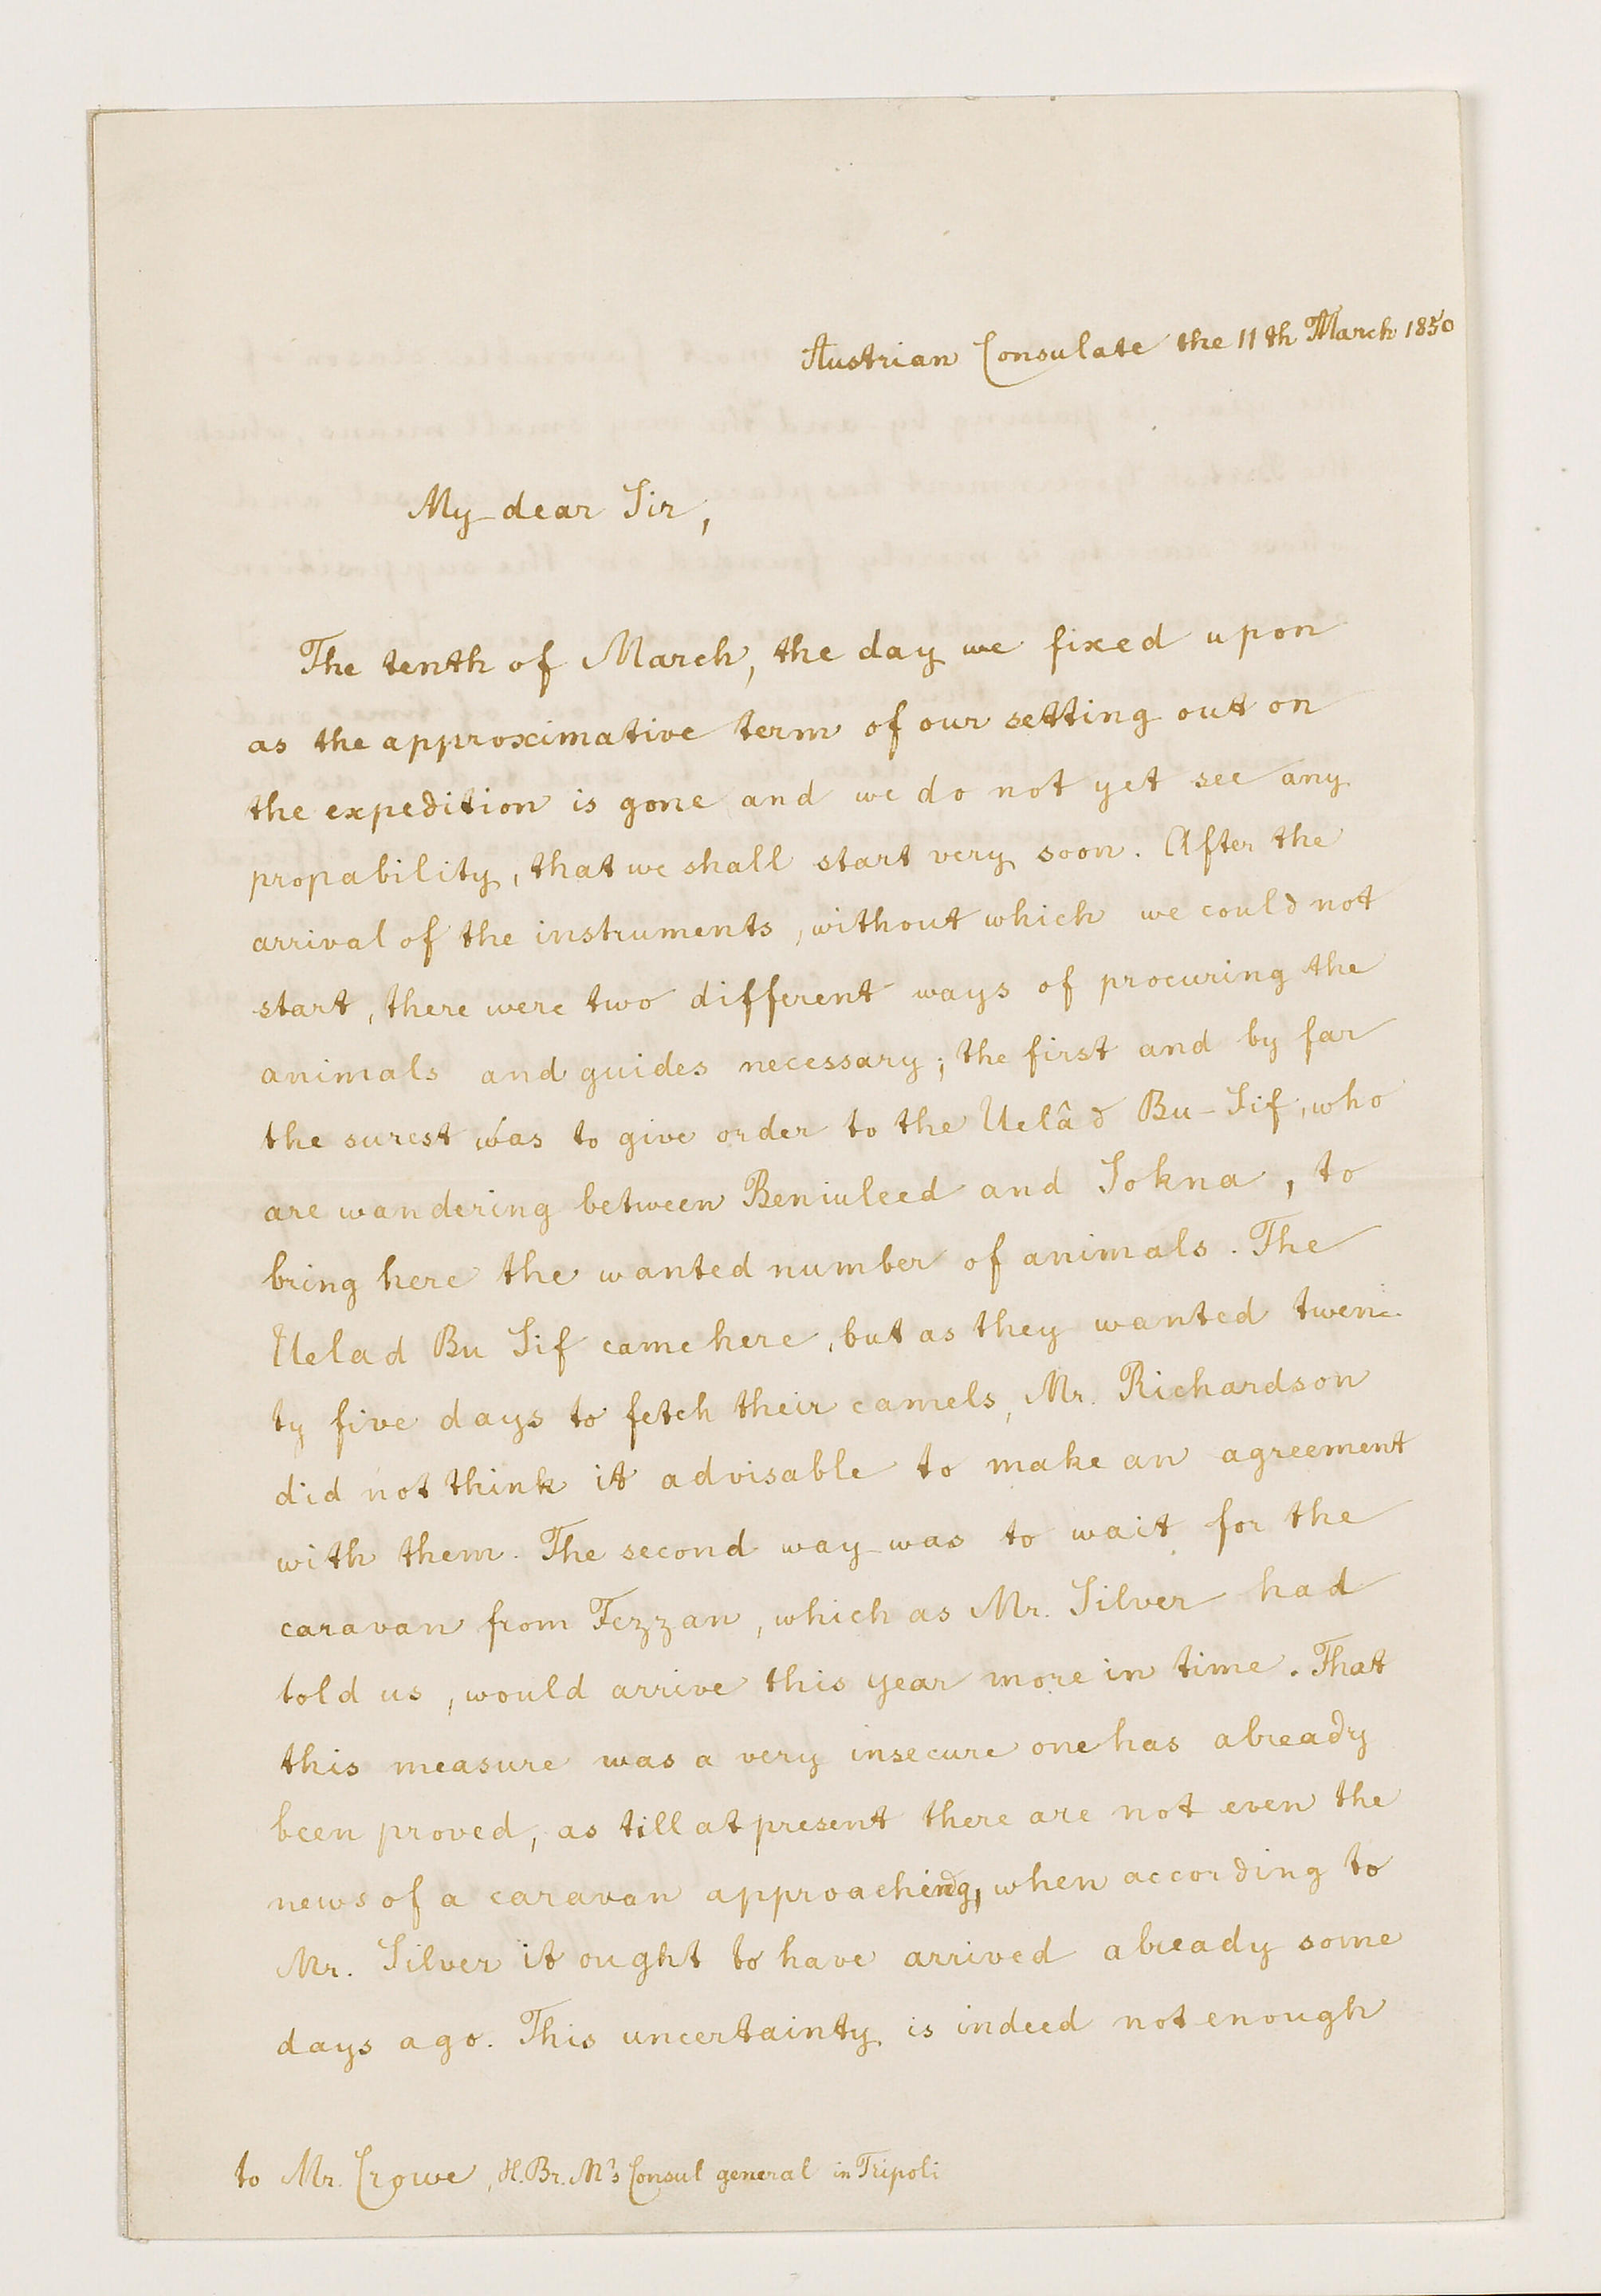 Austrian Consulate the 11th March 1850
My dear Sir,
The tenth of March, the day we fixed upon
as the approximative term of our setting out on
the expedition is gone and we do not yet see any
propability, that we shall start very soon. After the
arrival of the instruments, without which we could not
start, there were two different ways of procuring the
animals and guides necessary; the first and by far
the surest was to give order to the Uelâd Bu-Sif, who
are wandering between Beniuleed and Sokna, to
bring here the wanted number of animals. The
Uelad Bu Sif came here, but as they wanted twen-
ty five days to fetch their camels, Mr. Richardson
did not think it advisable to make an agreement
with them. The second way was to wait for the
caravan from Fezzan, which as Mr. Silver had
told us, would arrive this year more in time. That
this measure was a very insecure one has already
been proved, as till at present there are not even the
news of a caravan approaching, when according to
Mr. Silver it ought to have arrived already some
days ago. This uncertainty is indeed not enough
to Mr. Crowe, H. Br. M's Consul general in Tripoli